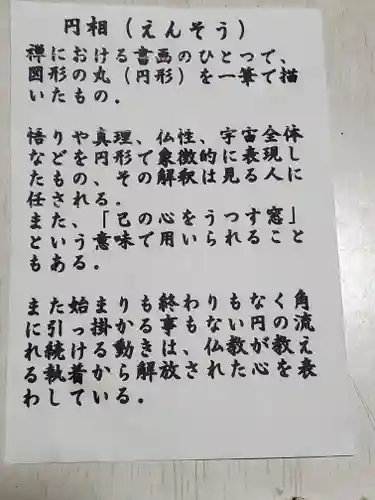 円相（えんそう）
禅における書画のひとつで、
図形の丸（円形）を一筆で描
いたもの．
悟りや真理、仏性、宇宙全体
などを円形で象徴的に表現し
たもの、その解釈は見る人に
任される．
また、「己の心をうつす窓」
という意味で用いられること
もある．
また始まりも終わりもなく角
に引っ掛かる事もない円の流
れ続ける動きは、仏教が教え
る執着から解放された心を表
わしている．